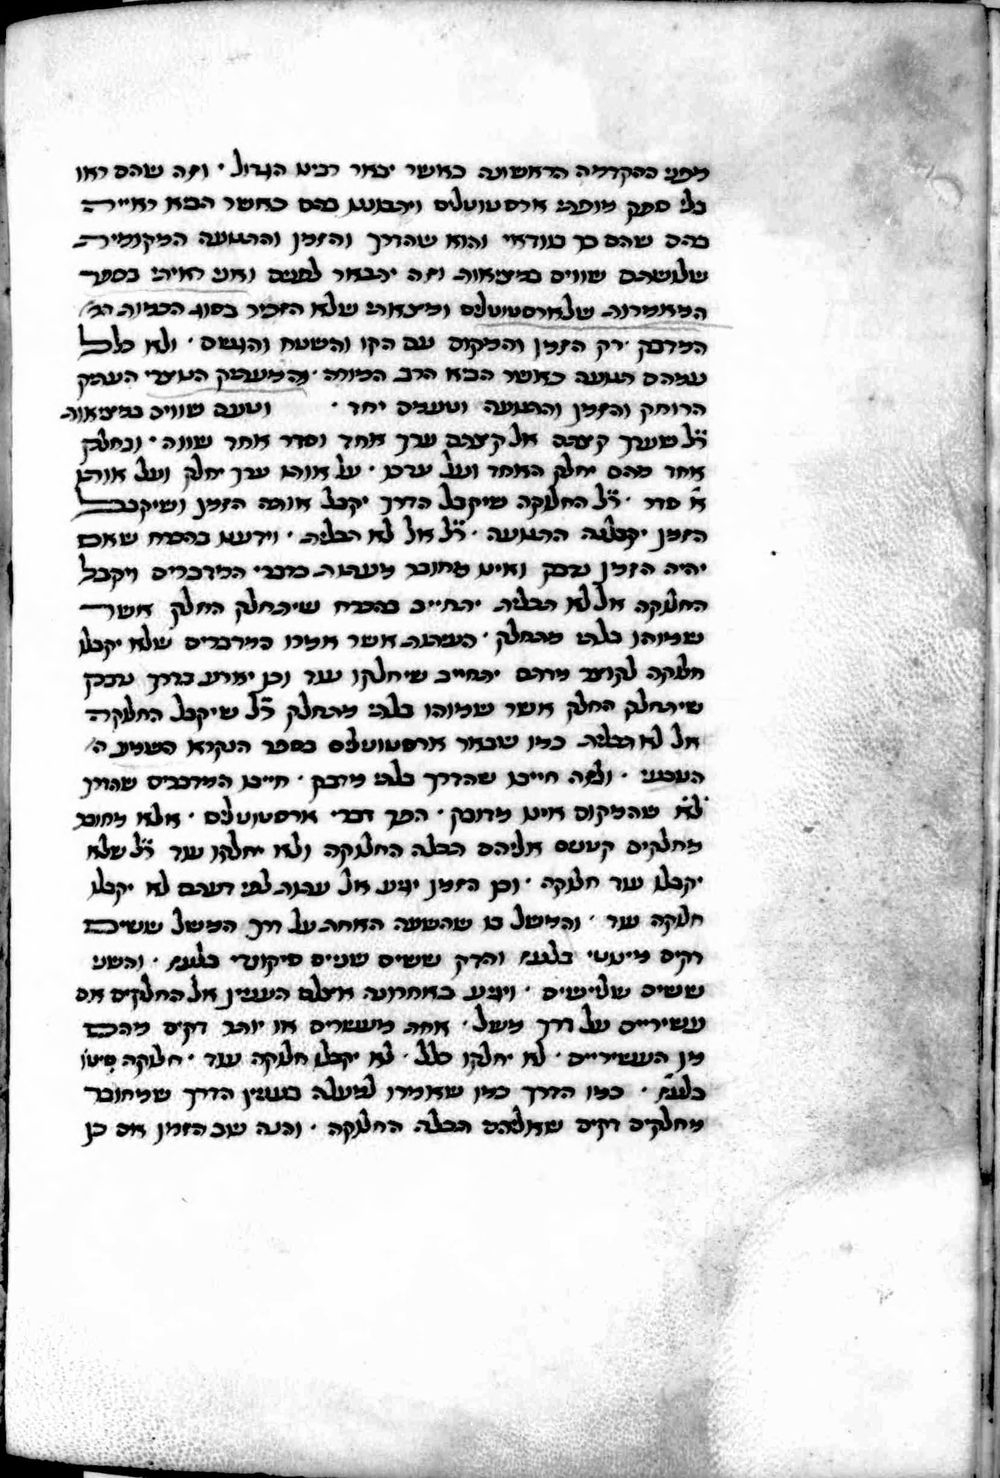 מפני כהקדמה הראשונה כאשר יבאר רבינו הגדול · וזה שהם ראו
בלי ספק מופתי ארסטוטלוס ויתבוננו בהם כאשר הביא ראייה
בהם שהם כך בודאי והוא שהדרך והזמן והתנועה המקומית
שלושתם שווים במציאות וזה יתבאר לפנים ואני ראיתי בספר
המאמרות שלארסטוטלוס ומצאתי שלא הזכיר בסוג הכמות הב׳
המדבק רק הזמן והמקום עם הקו והשטח והגשם · ולא כלל
עמהם תנועה כאשר הביא הרב המורה · והמעתיק העתיק
הרוחק והזמן והתנועה וטעמים יחד · וטעם שווים במציאות
ר״ל שערך קצתם אל קצתם ערך אחד וסדר אחד שווה · ובחלק
אחד מהם יחלק האחד ועל ערכו · על אותו ערך יחלק ועל אותו
א׳ סדר · ר״ל החלוקה שיקבל הדרך יקבל אותה הזמן ושיקבל
הזמן יקבלנה התנועה · ר״ל אל לא תכלית · וידענו בהכרח שאם
יהיה הזמן נדבק ואינו מחובר מעתות כדברי המדברים ויקבל
החלוקה אל לא תכלית יתחייב בהכרח שיתחלק החלק אשר
שמוהו בלתי מתחלק · העתות אשר אמרו המדברים שלא יקבלו
חלוקה לקוצר מדתם יתחייב שיחלקו עוד וכן יארע בדרך נדבק
שיתחלק החלק אשר שמוהו בלתי מתחלק ר״ל שיקבל החלוקה
אל לא תכלית כמו שבאר ארסטוטלוס בספר הנקרא השמע ה׳
הטבעי · ולזה חייבו שהדרך בלתי מדבק · חייבו המדברים שהדרך
ל״א שהמקום אינו מדובק · הפך דברי ארסטוטלוס · אלא מחובר
מחלקים קטנים אליהם תכלה החלוקה ולא יחלקו עוד ר״ל שלא
יקבלו עוד חלוקה · וכן הזמן יגיע אל עתות לפי דעתם לא יקבלו
חלוקה עוד · והמשל בו שהשעה האחת על דרך המשל ששים
דקים מינוטי בלעז והדק ששים שניים סיקונדי בלעז · והשני
ששים שלישיים · ויגיע באחרונה אצלם העניין אל החלקים אם
עשיריים על דרך משל · אחת מעשרים או יותר דקים מהם
מן העשיריים · לא יחלקו כלל · לא יקבלו חלוקה עוד · חלוקה
בלעז · כמו הדרך כמו שאמרו למעלה בעניין הדרך שמחובר
מחלקים דקים שאליהם תכלה החלוקה · והנה שב הזמן אם כן